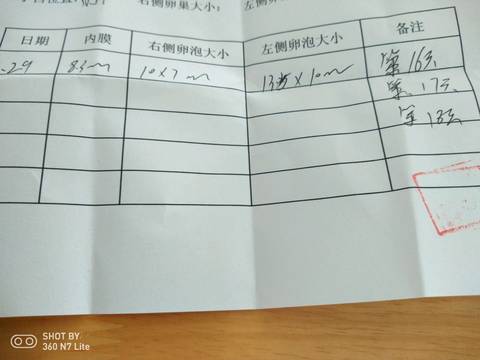 右侧卵巢大小： 左侧卵
日期 内膜 右侧卵泡大小 左侧卵泡大小 备注
.29 8.3m 10x7m x10m 第16天
第17天
第18天
SHOT BY
360 N7 Lite